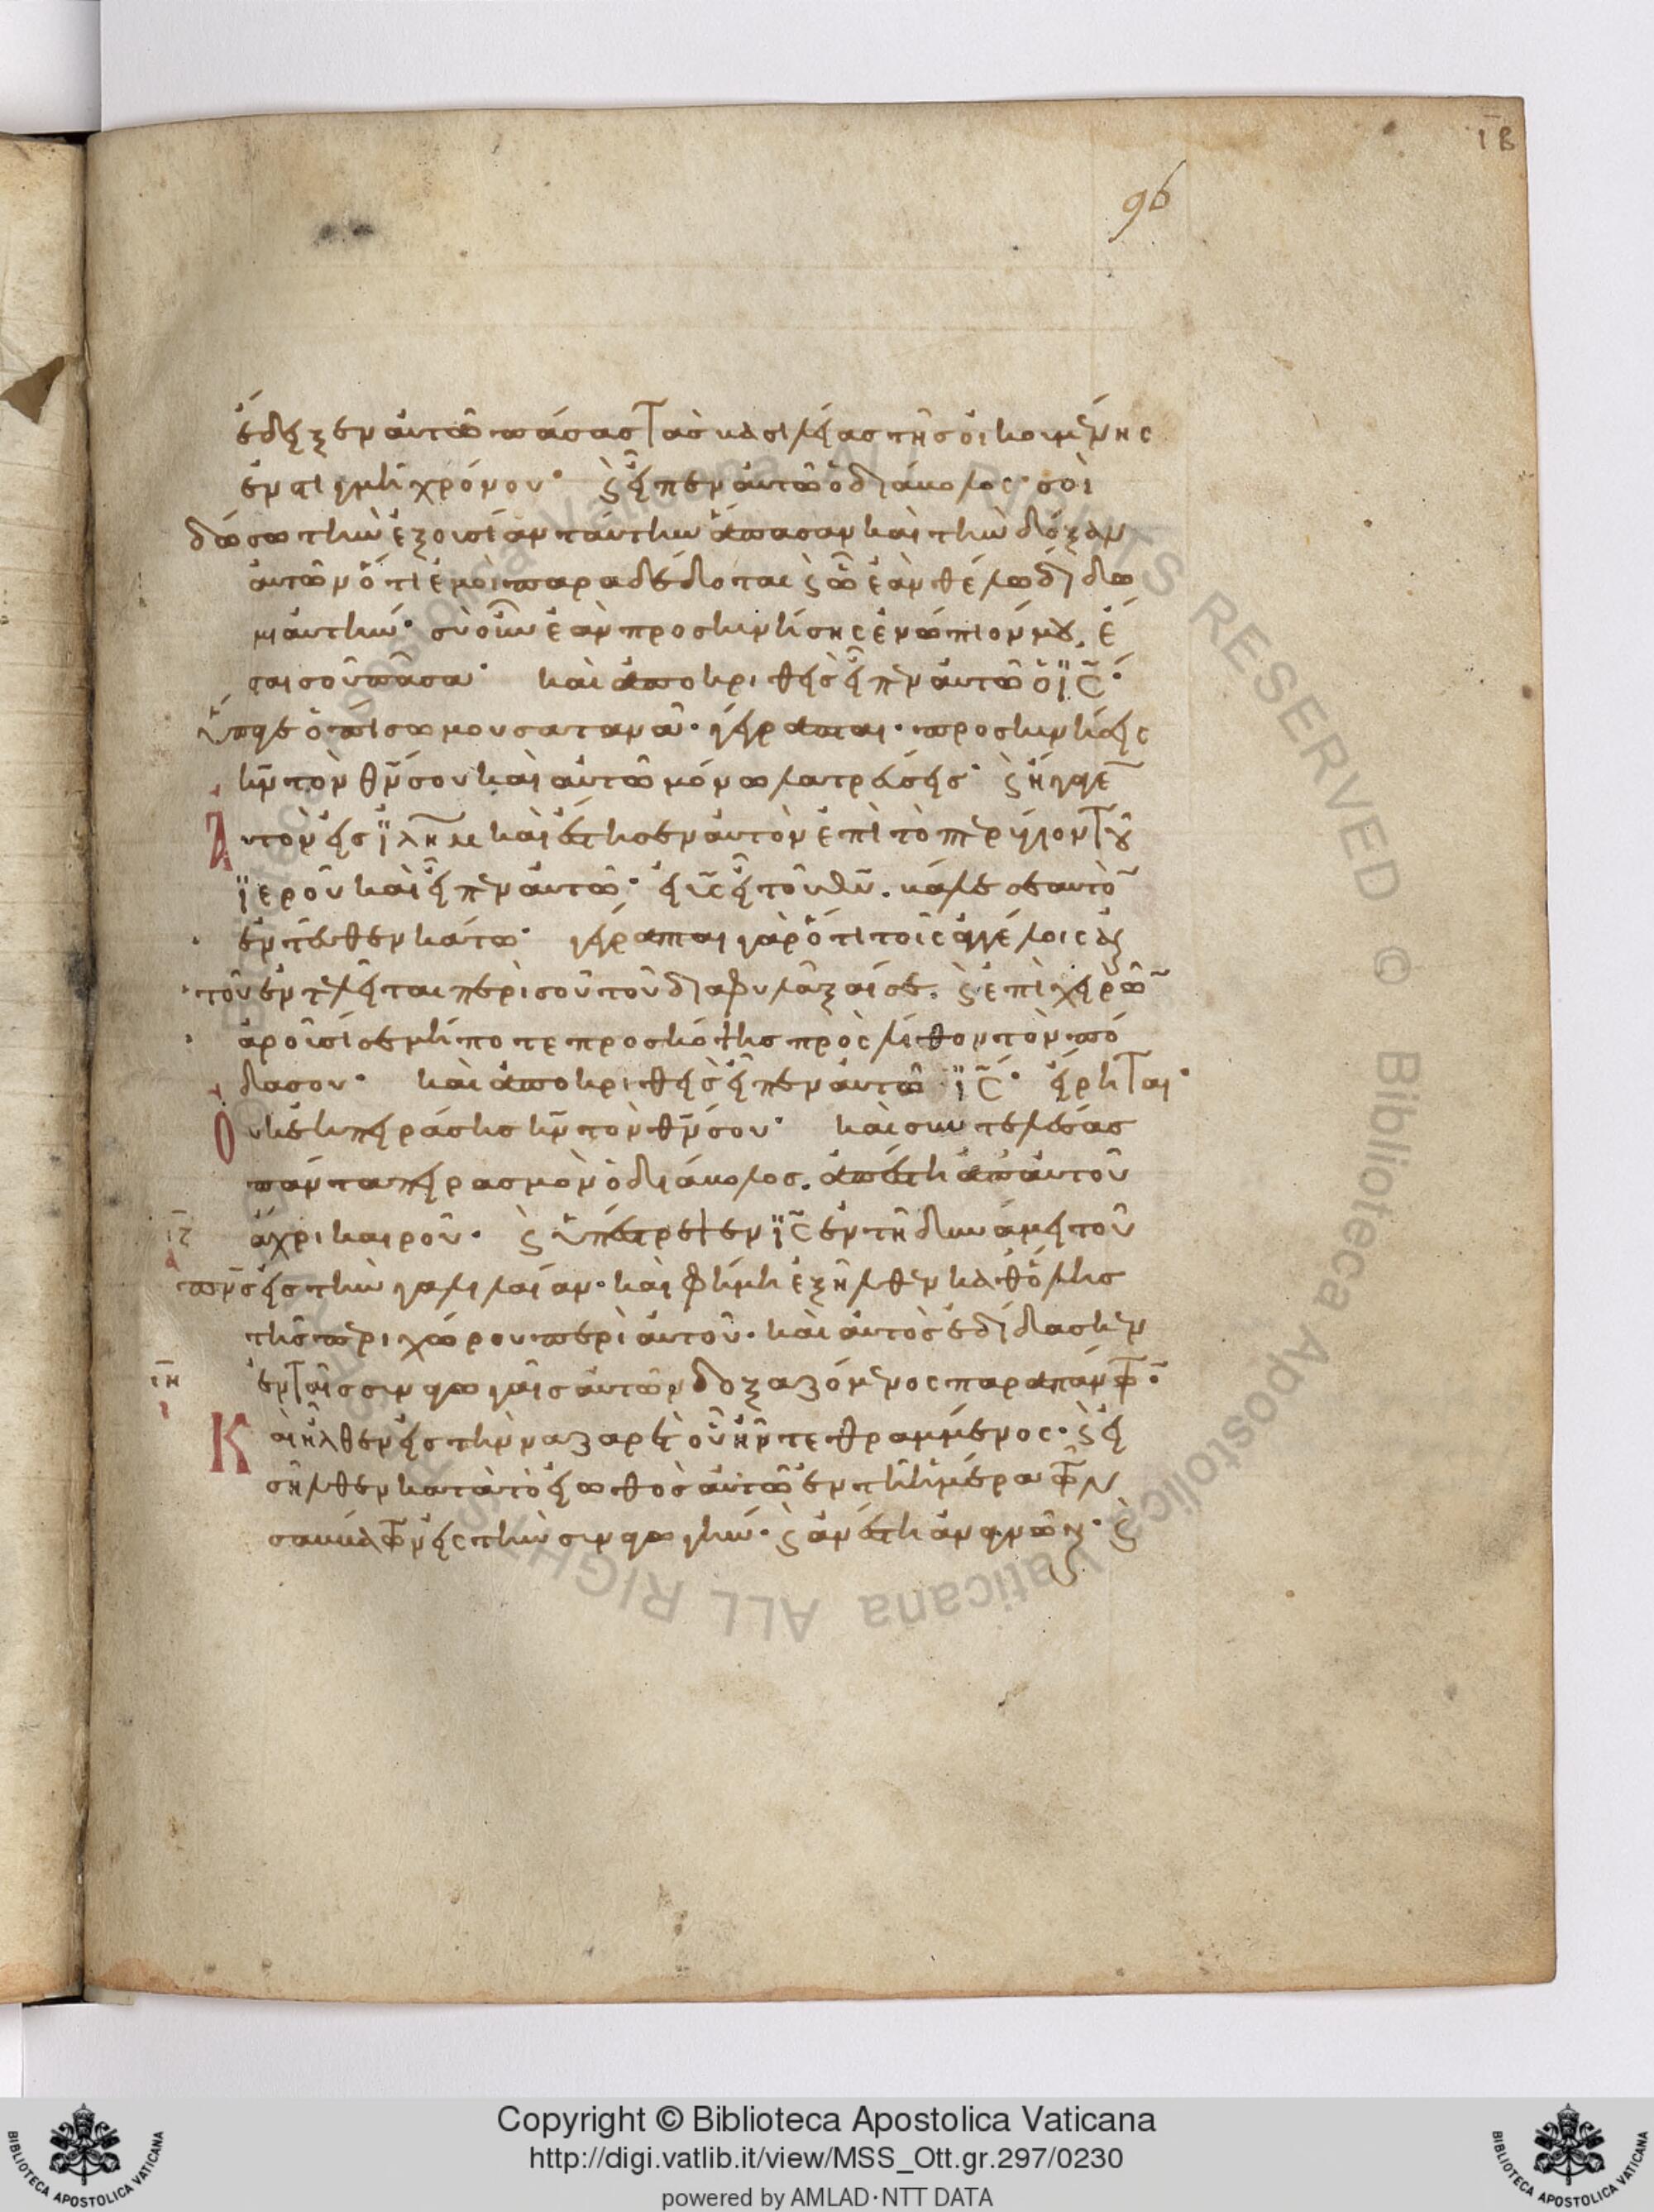 ιβ
96
ἔδειξεν αὐτῶ πάσας τὰς βασιλείας τῆς οἰκουμένης
ἐν στιγμῆ χρόνου· ϗ εἶπεν αὐτῶ ὁ διάβολος· σοὶ
δώσω τὴν ἐξουσίαν ταύτην ἅπασαν καὶ τὴν δόξαν
αὐτῶν ὅτι ἐμοὶ παραδέδοται ϗ ὧ ἐὰν θέλω δίδω
μι αὐτήν· σὺ οὖν ἐὰν προσκυνήσης ἐνώπιόν μου, ἔ
σται σοῦ πᾶσα· καὶ ἀποκριθεὶς εἶπεν αὐτῶ ὁ ϊς̅·
ὕπαγε ὀπίσω μου σατανᾶ· γέγραπται· προσκυνήσεις
κν̅ τὸν θν̅ σου καὶ αὐτῶ μόνω λατρεύσεις· ϗ ἤγαγε̅
Αυτὸν εἰς ϊλη̅μ καὶ ἔστησεν αὐτὸν ἐπὶ τὸ πτερύγιον τοῦ
ϊεροῦ καὶ εἶπεν αὐτῶ· εἰ υς̅ εἶ τοῦ θυ̅. βάλε σεαυτὸ̅
ἐντεῦθεν κάτω· γέγραπται γὰρ ὅτι τοῖς ἀγγέλοις αὐ
τοῦ ἐντελεῖται περὶ σοῦ τοῦ διαφυλάξαι σε. ϗ ἐπὶ χειρῶ̅
ἀροῦσί σε μήποτε προσκόψης πρὸς λίθον τὸν πό
δα σου· καὶ ἀποκριθεὶς εἶπεν αὐτῶ ϊς̅· εἴρηται·
Ουκ ἐκπειράσεις κν̅ τὸν θν̅ σου· καὶ συντελέσας
πάντα πειρασμὸν ὁ διάβολος. ἀπέστη ἀπ αὐτοῦ
ιζ ἄχρι καιροῦ· ϗ ὑπέστρεψεν ϊς̅ ἐν τῆ δυνάμει τοῦ
πν̅ς εἰς τὴν γαλιλαίαν· καὶ φήμη ἐξῆλθεν καθ ὅλης
τῆς περιχώρου περὶ αὐτοῦ· καὶ αὐτὸς ἐδίδασκεν
ιη ἐν ταῖς συναγωγαῖς αὐτῶν δοξαζόμενος παρα πάντω̅·
Και ἦλθεν εἰς τὴν ναζαρὲτ οὗ ἦν τεθραμμένος· ϗ εἰ
σῆλθεν κατὰ τὸ εἰωθὸς αὐτῶ ἐν τῆ ἡμέρα τῶν
σαββάτων εἰς τὴν συναγωγήν· ϗ ἀνέστη ἀναγνῶναι· ϗ
Copyright © Biblioteca Apostolica Vaticana
http://digi.vatlib.it/view/MSS_Ott.gr.297/0230
powered by AMLAD·NTT DATA